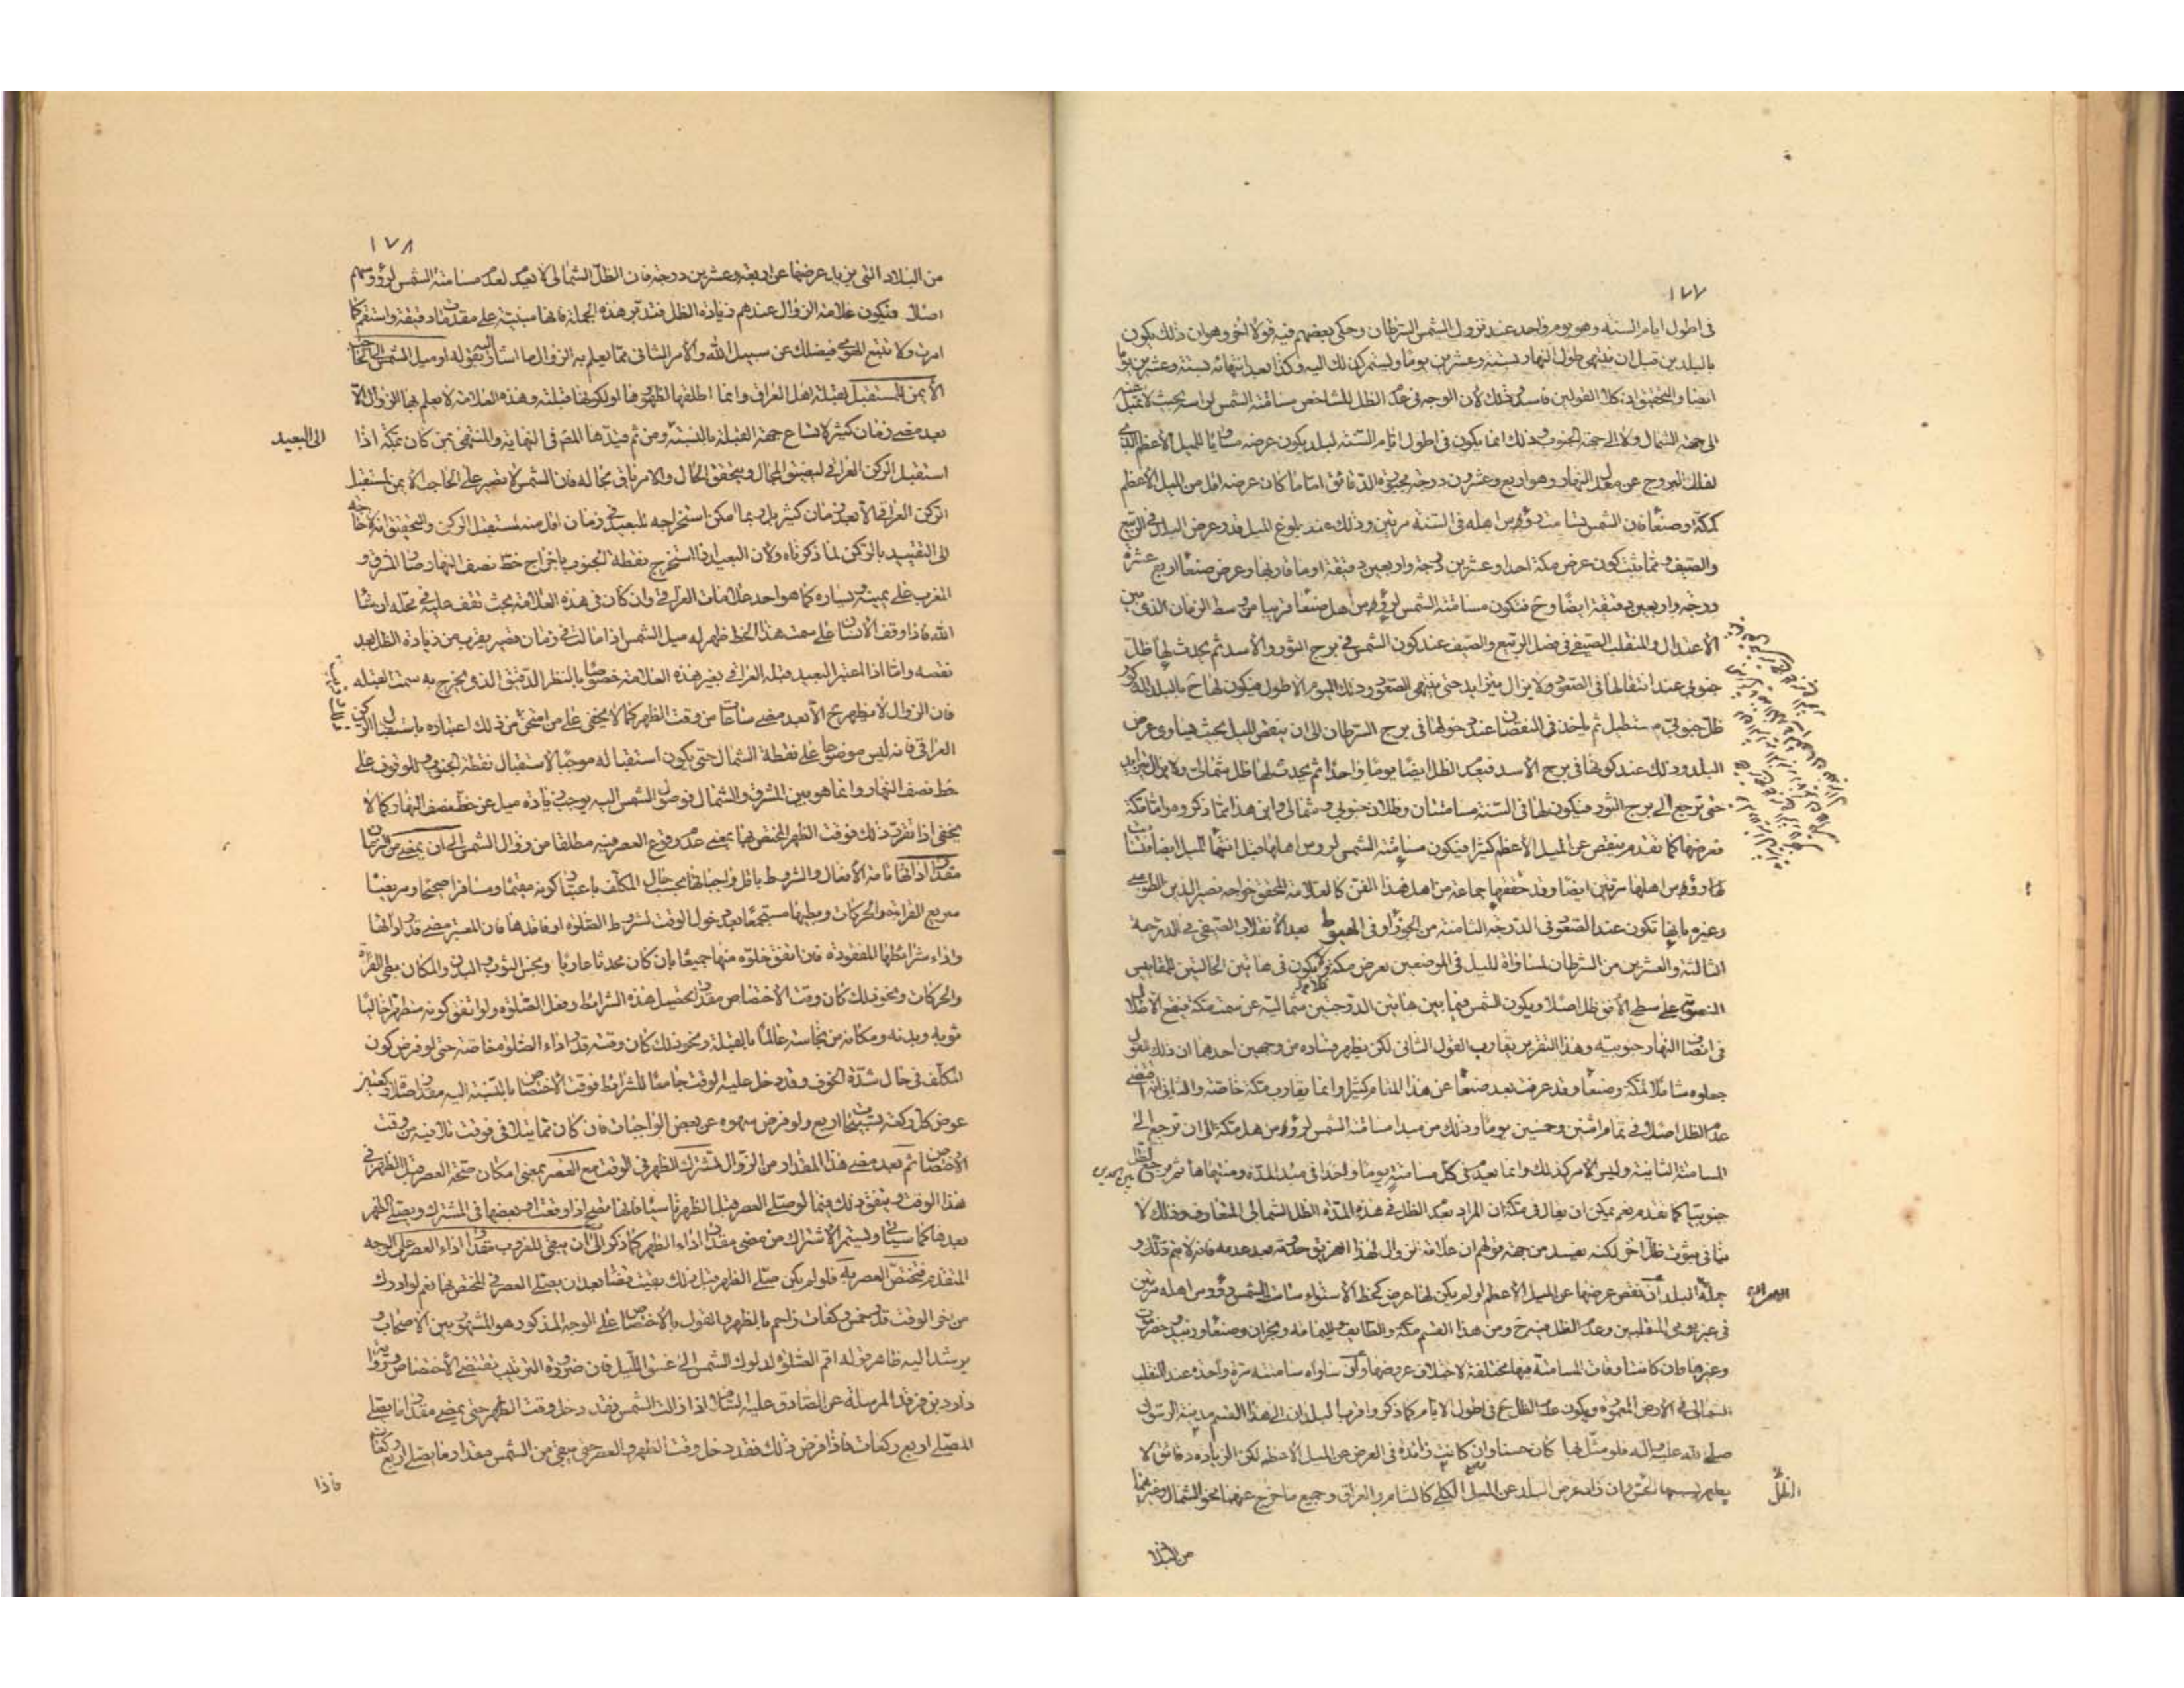 ١٧٧
فى اطول ايام السنة وهو يوم واحد عند نزول الشمس السرطان وحكى بعضهم فيه قولا اخر وهو ان ذلك يكون
بالبلدين قبل ان ينتهى طول النهار بستة وعشرين يوما ويستمر كذلك اليه وكذا بعد انتهائه بستة وعشرين يوما
ايضا والتحقيق ان كلا القولين فاسد وذلك لان الوجه فى عدم الظل للشاخص مسامتة الشمس لراسه بحيث لا تميل عنه
الى جهة الشمال ولا الى جهة الجنوب وذلك انما يكون فى اطول ايام السنة لبلد يكون عرضه مساويا للميل الاعظم الذى
لفلك البروج عن معدل النهار وهو اربع وعشرون درجة محبورة الدقائق اما ما كان عرضه اقل من الميل الاعظم
كمكة وصنعا فان الشمس تسامت رؤوس اهله فى السنة مرتين وذلك عند بلوغ الميل قدر عرض البلد فى الربيع
والصيف وقد ثبت كون عرض مكة احدا وعشرين درجة واربعين دقيقة او ما قاربها وعرض صنعا اربع عشرة
درجة واربعين دقيقة ايضا وح فتكون مسامتة الشمس لرؤوس اهل صنعا قريبا من وسط الزمان الذى بين
الاعتدال والمنقلب الصيفى فى فصل الربيع والصيف عند كون الشمس فى برج الثور والاسد ثم يحدث لها ظل
جنوبى عند انتقالها فى الصعود ولا يزال يتزايد حتى ينتهى الصعود وذلك اليوم الاطول فيكون لها ح بالبلد المذكور
ظل جنوبى مستطيل ثم ياخذ فى النقصان عند دخولها فى برج السرطان الى ان ينقص الميل بحيث يساوى عرض
البلد وذلك عند كونها فى برج الاسد فيعدم الظل ايضا يوما واحدا ثم يحدث لها ظل شمالى ولا يزال يتزايد
حتى ترجع الى برج الثور فيكون لها فى السنة مسامتتان وظلان جنوبى وشمالى واين هذا مما ذكروه واما مكة
فعرضها كما تقدم ينقص عن الميل الاعظم كثيرا فيكون مسامتة الشمس لرؤس اهلها قبل انتهاء الميل ايضا
لرؤوس اهلها مرتين ايضا وقد حققها جماعة من اهل هذا الفن كالعلامة المحقق خواجه نصير الدين الطوسى
وغيره بانها تكون عند الصعود فى الدرجة الثامنة من الجوزا وفى الهبوط بعد الانقلاب الصيفى فى الدرجة
الثالثة والعشرين من السرطان لمساواة الميل فى الموضعين لعرض مكة فلا يكون فى هاتين الحالتين للمقاييس
المنصوبة على سطح الافق ظل اصلا ويكون الشمس فيما بين هاتين الدرجتين شمالية عن سمت مكة فيقع الاظلال
فى انصاف النهار جنوبية وهذا التقرير يقارب القول الثانى لكن يظهر فساده من وجهين احدهما ان ذلك القول
جعلوه شاملا لمكة وصنعا وقد عرفت بعد صنعا عن هذا المقام كثيرا وانما يقارب مكة خاصة والثانى انه اقتضى
عدم الظل اصلا فى تمام اثنين وخمسين يوما وذلك من مبدا مسامتة الشمس لرؤوس اهل مكة الى ان ترجع الى
المسامتة الثانية وليس الامر كذلك وانما يعدم فى كل مسامتة يوما واحدا فى مبدا المدة ومنتهاها ثم يرجع الظل
جنوبيا كما تقدم نعم يمكن ان يقال فى مكة ان المراد بعدم الظل فى هذه المدة الظل الشمالى المتعارف وذلك لا
ينافى ثبوت ظل اخر لكنه يفسد من جهة قولهم ان علامة الزوال لهذا الفريق حدوثه بعد عدمه فانه لا يتم ذلك و
جملة البلد ان نقص عرضها عن الميل الاعظم او لم يكن لها عرض كخط الاستواء سامت الشمس رؤوس اهله مرتين
فى غير يومى المنقلبين وعدم الظل فيه ح ومن هذا القسم مكة والطائف واليمامة ونجران وصنعا وزبيد وحضرموت
وغيرها وان كانت اوقات المسامتة فيها مختلفة لاختلاف عروضها وان ساواه سامتته مرة واحدة عند المنقلب
الشمالى فى الارض المعمورة ويكون عدم الظل ح فى اطول الايام كما ذكر واقرب البلدان الى هذا القسم مدينة الرسول
صلى الله عليه واله فلو مثل بها كان حسنا وان كانت زائدة فى العرض عن الميل الاعظم لكن الزيادة دقائق لا
يظهر بسببها للحس وان زاد عرض البلد عن الميل الكلى كالشام والعراق وجميع ما خرج عرضها نحو الشمال وغيرهما
الظل
من البلاد
١٧٨
من البلاد التى يزيد عرضها عن اربعة وعشرين درجة فان الظل الشمالى لا يعدم لعدم مسامتة الشمس لرؤوسهم
اصلا فتكون علامة الزوال عندهم زيادة الظل فتدبر هذه الجملة فانها مبنية على مقدمات دقيقة واستقم كما
امرت ولا تتبع الهوى فيضلك عن سبيل الله والامر الثانى مما يعلم به الزوال ما اشار اليه بقوله او ميل الشمس الى الحاجب
الايمن للمستقبل لقبلة اهل العراق وانما اطلقها لظهورها او لكونها قبلته وهذه العلامة لا يعلم بها الزوال الا
بعد مضى زمان كثير لاتساع جهة القبلة بالنسبة ومن ثم قيدها المصنف فى النهاية والمنتهى بمن كان بمكة اذا
الى البعيد
استقبل الركن العراقى ليضيق المجال ويتحقق الحال والامر باق بحاله فان الشمس لا تصير على الحاجب الايمن لمستقبل
الركن العراقى الا بعد زمان كثير بل ربما امكن استخراجه للبعيد فى زمان اقل منه لمستقبل الركن والتحقيق انه لا حاجة
الى التقييد بالركن لما ذكرناه ولان البعيد اذا استخرج نقطة الجنوب باخراج خط نصف النهار صار المشرق و
المغرب على يمينه ويساره كما هو احد علامات العراقى وان كان فى هذه العلامة بحث تقف عليه فى محله ان شا
الله فاذا وقف الانسان على سمت هذا الخط ظهر له ميل الشمس اذا مالت فى زمان قصير يقرب من زيادة الظل بعد
نقصه واما اذا اعتبر البعيد قبلة العراقى بغير هذه العلامة خصوصا بالنظر الدقيق الذى يخرج به سمت القبلة
فان الزوال لا يظهر ح الا بعد مضى ساعات من وقت الظهر كما لا يخفى على من امتحن ذلك اعتباره باستقبال الركن
العراقى فانه ليس موضوعا على نقطة الشمال حتى يكون استقباله موجبا لاستقبال نقطة الجنوب والوقوف على
خط نصف النهار وانما هو بين المشرق والشمال فوصول الشمس اليه يوجب زيادة ميل عن خط نصف النهار كما لا
يخفى اذا تقرر ذلك فوقت الظهر المختص بها بمعنى عدم وقوع العصر فيه مطلقا من زوال الشمس الى ان يمضى من الزمان
مقدار ادائها تامة الافعال والشروط باقل واجباتها بحسب حال المكلف باعتبار كونه مقيما ومسافرا صحيحا ومريضا
سريع القراءة والحركات وبطيئها مستجمعا بعد دخول الوقت لشروط الصلوة او فاقدها فان المعتبر مضى قدر ادائها
واداء شرائطها المفقودة فان اتفق خلوه منها جميعا بان كان محدثا عاريا ونجس الثوب والبدن والمكان بطى القراءة
والحركات ونحو ذلك كان وقت الاختصاص مقدار تحصيل هذه الشرائط وفعل الصلوة ولو اتفق كونه متطهرا خاليا
ثوبه وبدنه ومكانه من نجاسة عالما بالقبلة ونحو ذلك كان وقته قدر اداء الصلوة خاصة حتى لو فرض كون
المكلف فى حال شدة الخوف وقد دخل عليه الوقت جامعا للشرائط فوقت الاختصاص بالنسبة اليه مقدار صلوة ركعتين
عوض كل ركعة تسبيحات اربع ولو فرض سهوه عن بعض الواجبات فان كان مما يتلافى فوقت تلافيه من وقت
الاختصاص ثم بعد مضى هذا المقدار من الزوال تشترك الظهر فى الوقت مع العصر بمعنى امكان صحة العصر قبل الظهر فى
هذا الوقت ويتفق ذلك فيما لو صلى العصر قبل الظهر ناسيا فانها تصح اذا وقعت او بعضها فى المشترك ويصلى الظهر
بعدها كما سياتى ويستمر الاشتراك من مضى مقدار اداء الظهر كما ذكر الى ان يبقى للغروب مقدار اداء العصر على الوجه
المتقدم فتختص العصر به فلو لم يكن صلى الظهر قبل ذلك بقيت قضا بعد ان يصلى العصر فى المختص بها نعم لو ادرك
من اخر الوقت قدر خمس ركعات زاحم بالظهر والقول بالاختصاص على الوجه المذكور هو المشهور بين الاصحاب و
يرشد اليه ظاهر قوله اقم الصلوة لدلوك الشمس الى غسق الليل فان ضرورة الترتيب تقتضى الاختصاص ورواية
داود بن فرقد المرسلة عن الصادق عليه السلام اذا زالت الشمس فقد دخل وقت الظهر حتى يمضى مقدار ما يصلى
المصلى اربع ركعات فاذا مضى ذلك فقد دخل وقت الظهر والعصر حتى يبقى من الشمس مقدار ما يصلى اربع ركعات
فاذا